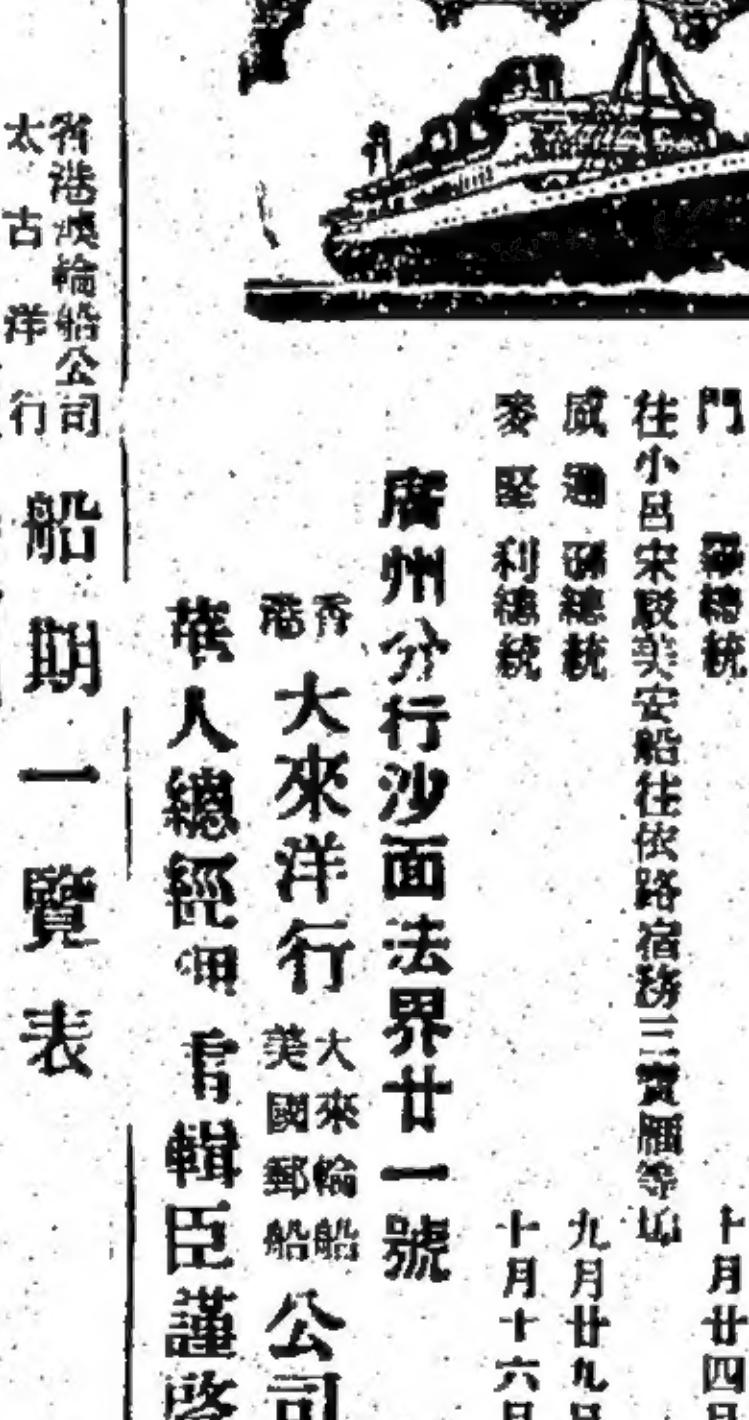 門羅總統 十月廿四日
往小呂宋駁美安船往依路宿務三寶雁等埠
威通碌總統 九月廿九日
麥堅利總統 十月十六日
廣州分行沙面法界廿一號
香港 大來洋行 大來輪船 美國郵船 公司
華人總經理 輯臣謹啓
省港澳輪船公司
太古洋行
船期一覽表